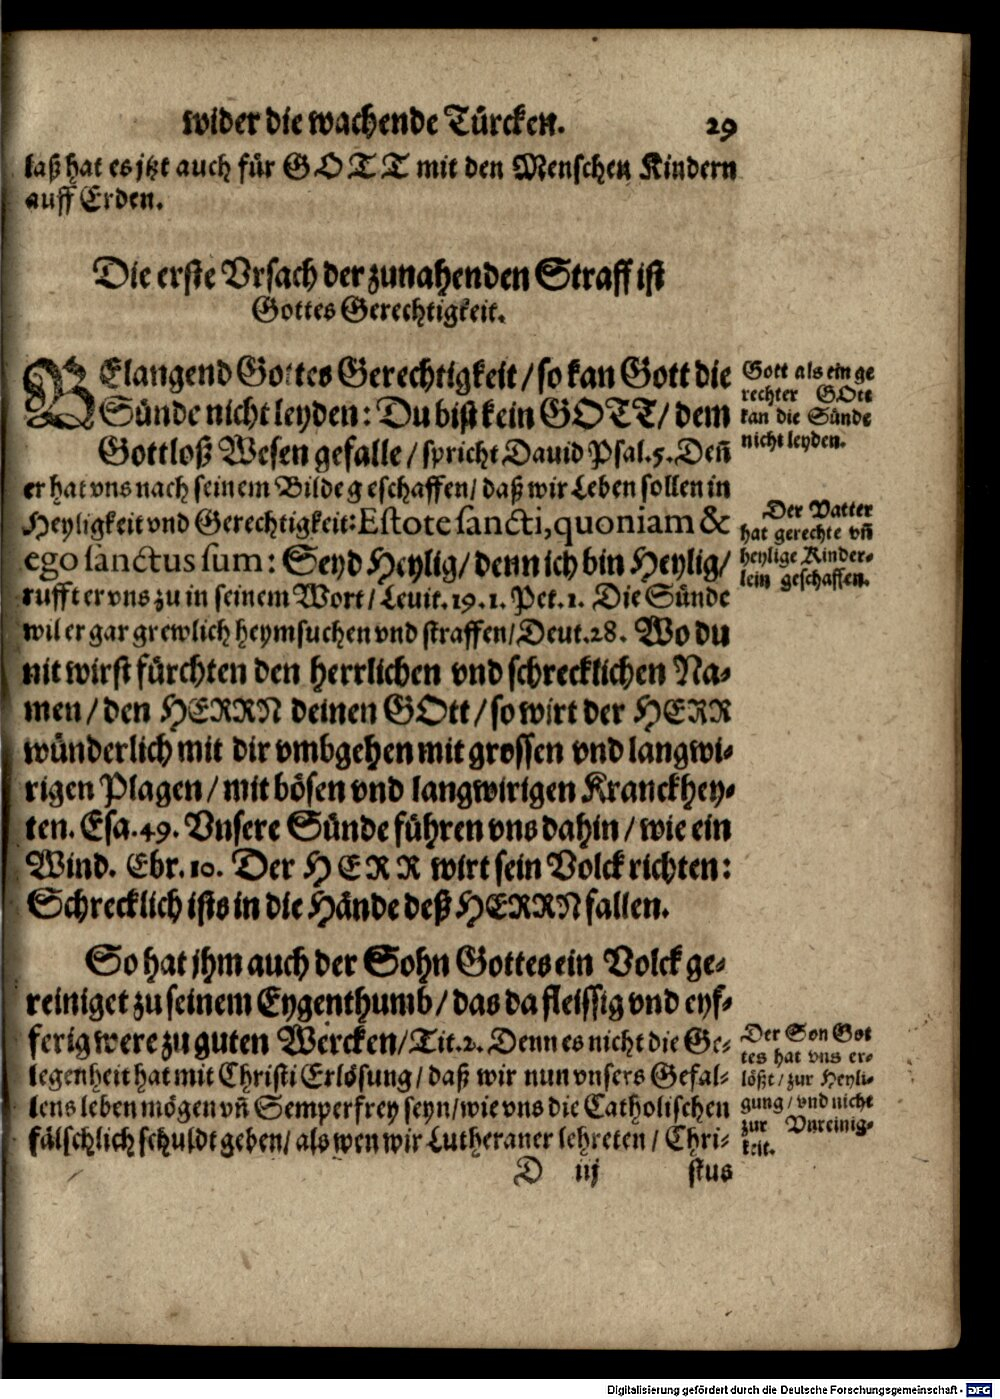 wider die wachende Türcken. 29
laß hat es jtzt auch für GOTT mit den Menschen Kindern
auff Erden.
Die erste Vrsach der zunahenden Straff ist
Gottes Gerechtigkeit.
BElangend Gottes Gerechtigkeit / so kan Gott die
Sünde nicht leyden: Du bist kein GOTT / dem
Gottloß Wesen gefalle / spricht Dauid Psal. 5. Deñ
er hat vns nach seinem Bilde geschaffen / daß wir Leben sollen in
Heyligkeit vnd Gerechtigkeit: Estote sancti, quoniam &
ego sanctus sum: Seyd Heylig / denn ich bin Heylig /
rufft er vns zu in seinem Wort / Leuit. 19. 1. Pet. 1. Die Sünde
wil er gar grewlich heymsuchen vnd straffen / Deut. 28. Wo du
nit wirst fürchten den herrlichen vnd schrecklichen Na-
men / den HERRN deinen GOtt / so wirt der HERR
wünderlich mit dir vmbgehen mit grossen vnd langwi-
rigen Plagen / mit bösen vnd langwirigen Kranckhey-
ten. Esa. 49. Vnsere Sünde führen vns dahin / wie ein
Wind. Ebr. 10. Der HERR wirt sein Volck richten:
Schrecklich ists in die Hände deß HERRN fallen.
So hat jhm auch der Sohn Gottes ein Volck ge-
reiniget zu seinem Eygenthumb / das da fleissig vnd eyf-
ferig were zu guten Wercken / Tit. 2. Denn es nicht die Ge-
legenheit hat mit Christi Erlösung / daß wir nun vnsers Gefal-
lens leben mögen vñ Semperfrey seyn / wie vns die Catholischen
fälschlich schuldt geben / als wen wir Lutheraner lehreten / Chri-
D iij stus
Gott als ein ge
rechter GOtt
kan die Sünde
nicht leyden.
Der Vatter
hat gerechte vñ
heylige Kinder-
lein geschaffen.
Der Son Got
tes hat vns er-
lößt / zur Heyli-
gung / vnd nicht
zur Vnreinig-
keit.
Digitalisierung gefördert durch die Deutsche Forschungsgemeinschaft - DFG